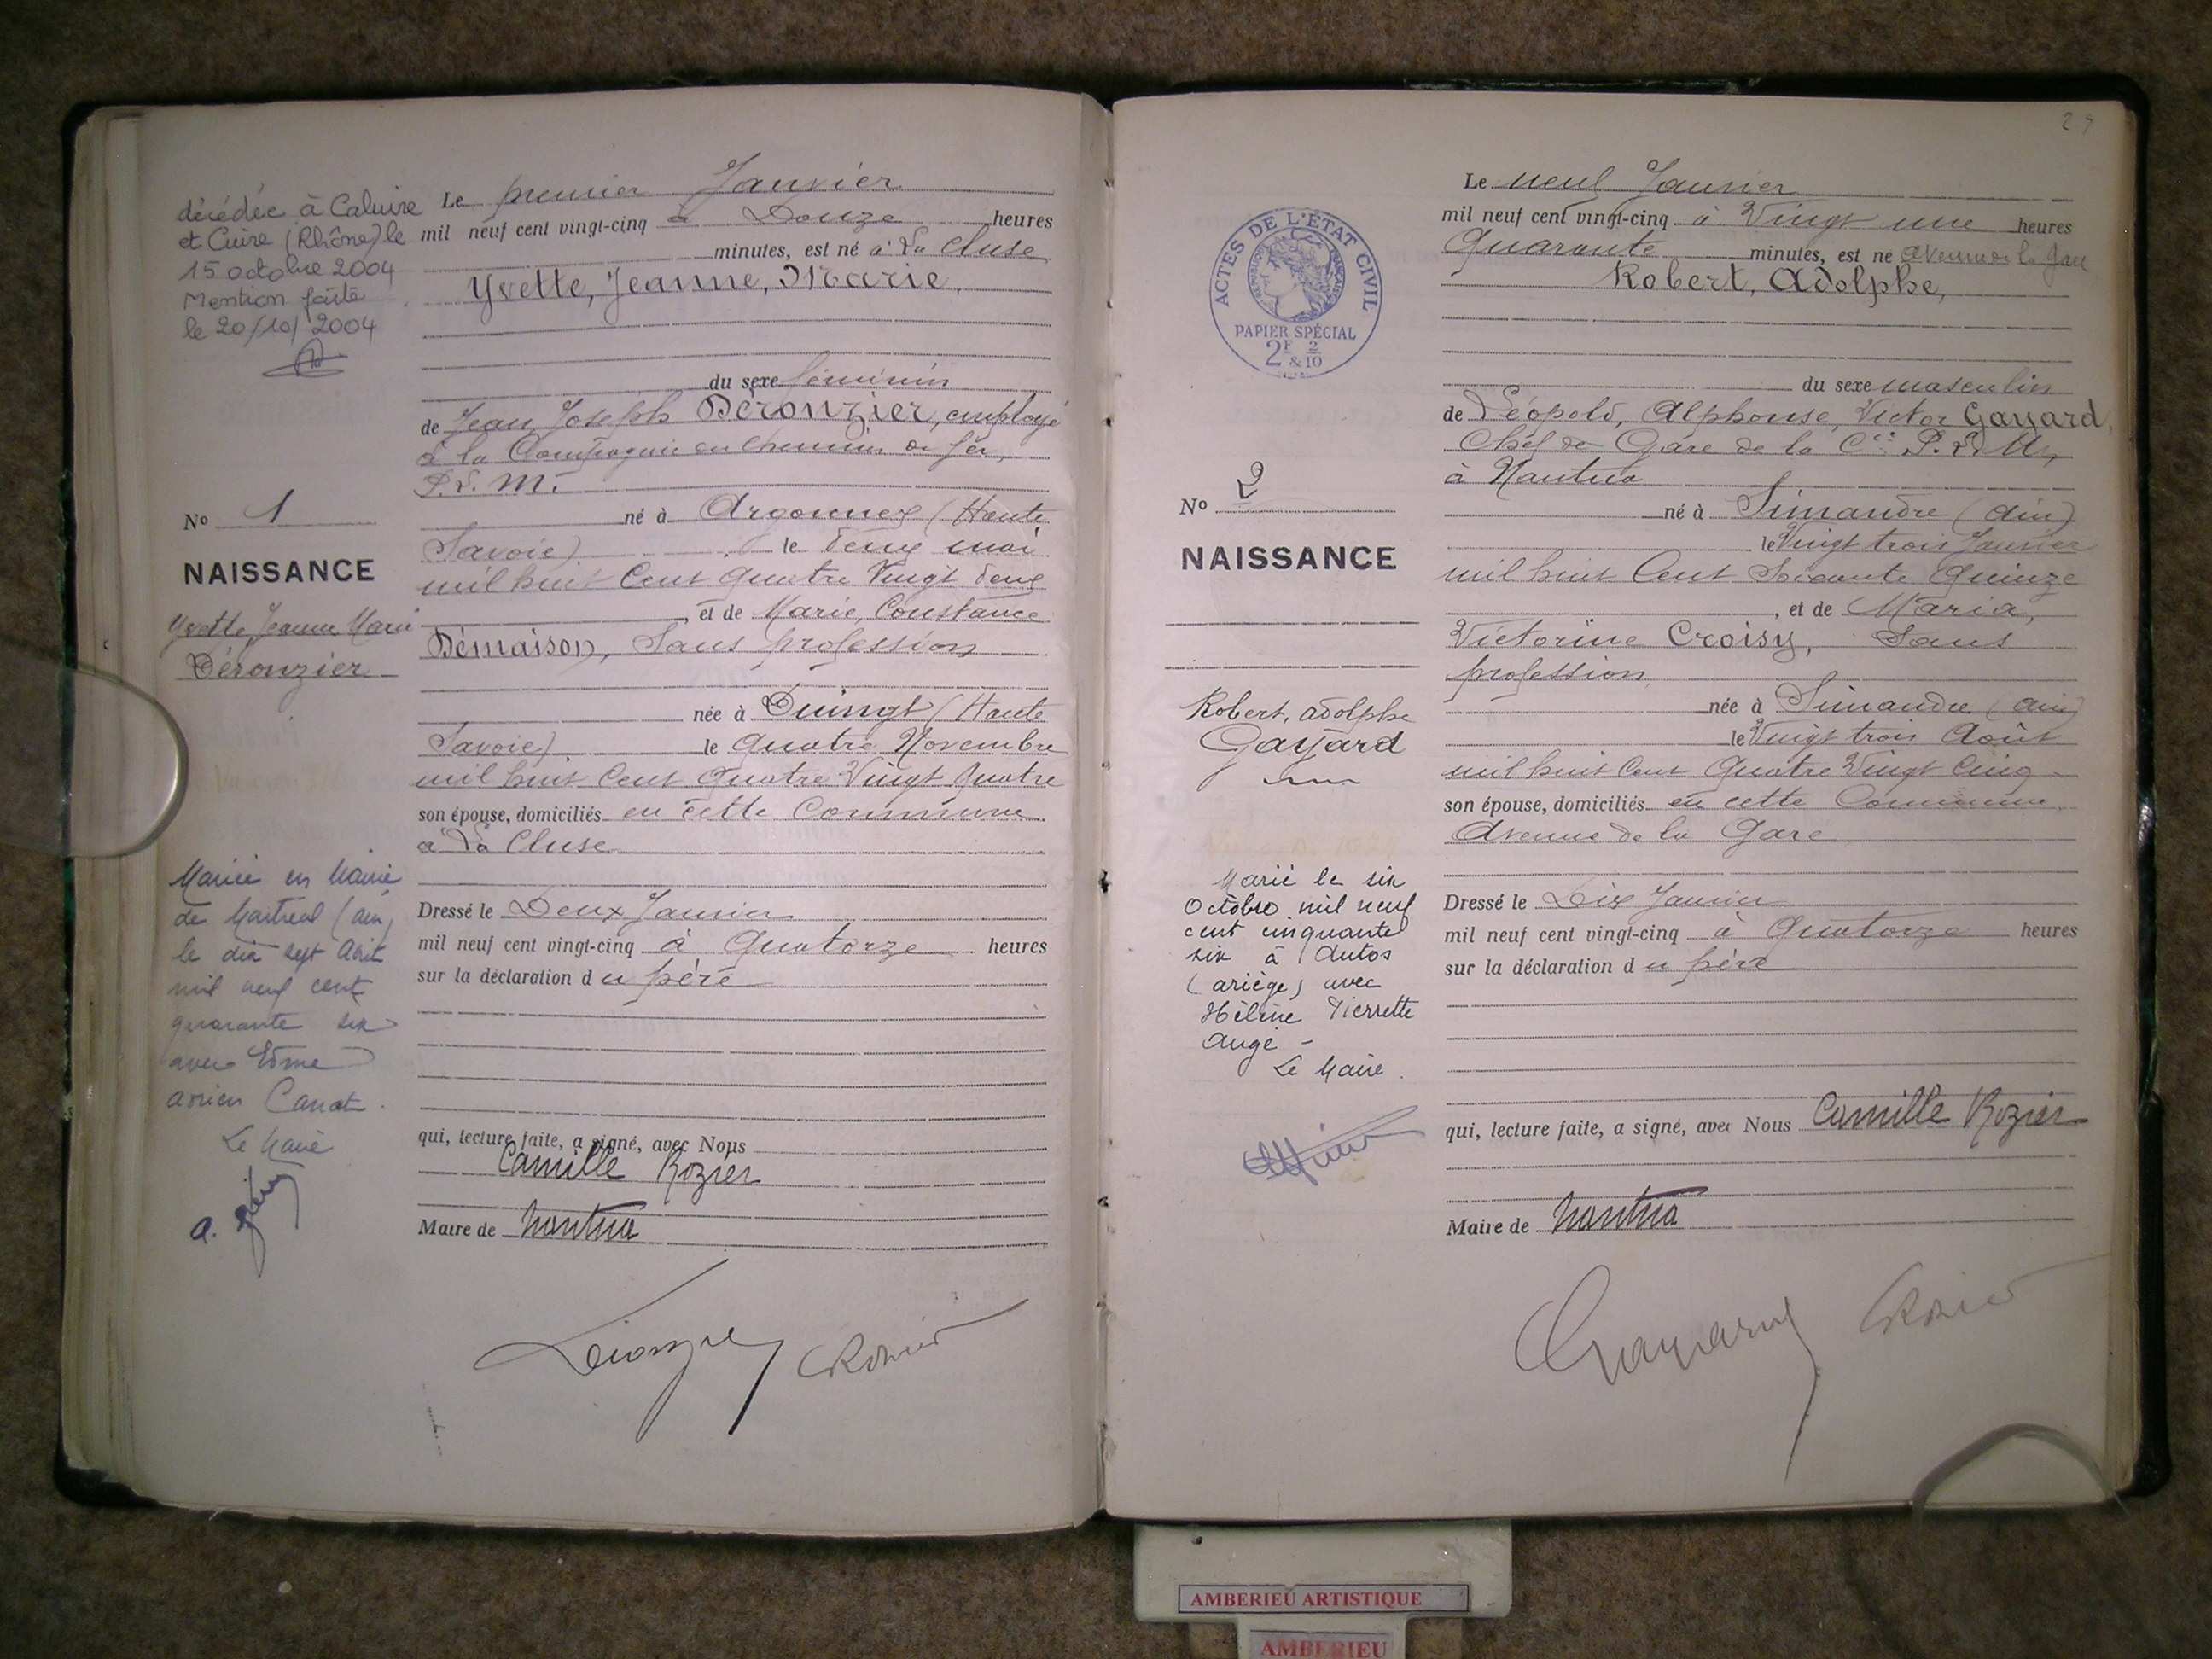 décédée à Caluire
et Cuire (Rhône) le
15 octobre 2004
Mention faite
le 20/10/2004
No 1
NAISSANCE
Yvette Jeanne Marie
Déronzier
Mariée en Mairie
de Martreal (ain)
le dix sept Août
mil neuf cent
quarante six
avec Edme
Canat.
Le Maire
Le premier Janvier
mil neuf cent vingt-cinq à Douze heures
minutes, est né à La Cluse
Yvette, Jeanne, Marie,
du sexe féminin
de Jean, Joseph Déronzier, employé
à la Compagnie du Chemin de fer,
P. L. M.
né à Argonnex (Haute
Savoie) le deux mai
mil huit Cent Quatre Vingt deux
, et de Marie, Constance
Démaison, Sans profession
née à Duingt (Haute
Savoie) le Quatre Novembre
mil huit Cent Quatre Vingt Quatre
son épouse, domiciliés en cette Commune
à La Cluse
Dressé le Deux Janvier
mil neuf cent vingt-cinq à Quatorze heures
sur la déclaration du père
qui, lecture faite, a signé, avec Nous
Camille Rozier
Maire de Nantua
29
ACTES DE L'ÉTAT CIVIL
RÉPUBLIQUE FRANÇAISE
PAPIER SPÉCIAL
2F & 2/10
No 2
NAISSANCE
Robert, Adolphe
Gayard
Marié le six
Octobre mil neuf
cent cinquante
six à Autos
(ariège) avec
Hélène Pierrette
Augé -
Le Maire.
Le neuf Janvier
mil neuf cent vingt-cinq à Vingt une heures
Quarante minutes, est né avenue de la Gare
Robert, Adolphe,
du sexe masculin
de Léopold, Alphonse, Victor Gayard,
Chef de Gare de la Cie P. L. M,
à Nantua
né à Simandre (Ain)
le Vingt trois Janvier
mil huit Cent Soixante Quinze
, et de Maria,
Victorine Croisy, Sans
profession
née à Simandre (Ain)
le Vingt trois Août
mil huit Cent Quatre Vingt Cinq
son épouse, domiciliés en cette Commune
Avenue de la Gare
Dressé le Dix Janvier
mil neuf cent vingt-cinq à Quatorze heures
sur la déclaration du père
qui, lecture faite, a signé, avec Nous Camille Rozier
Maire de Nantua
AMBERIEU ARTISTIQUE
AMBERIEU